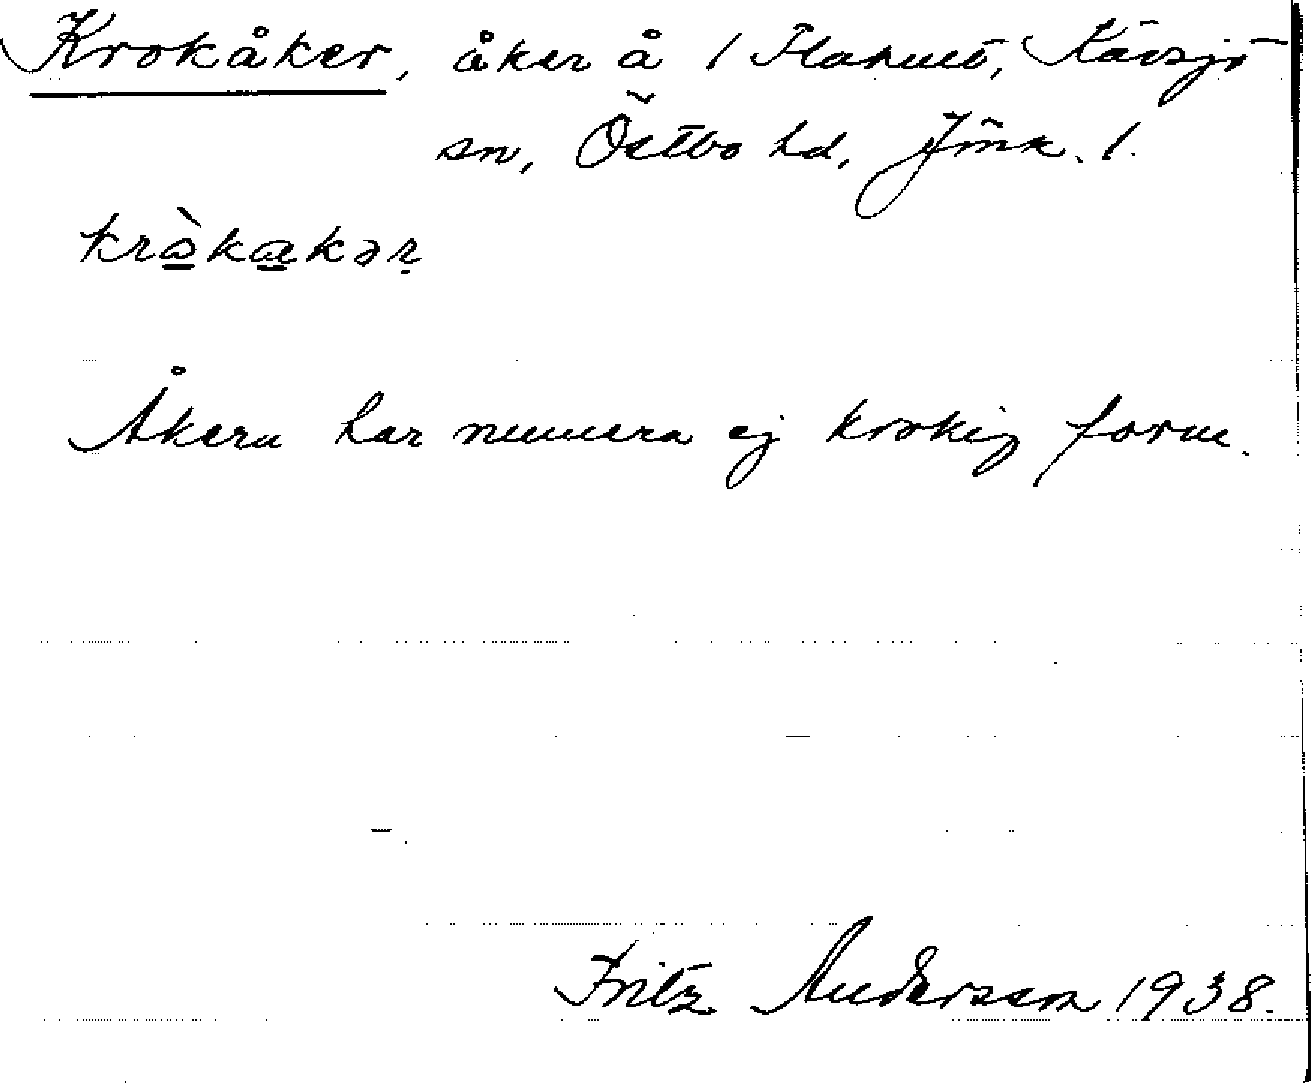 Krokåker, åker å 1 Hahult, Kävsjö
sn, Östbo hd, Jönk. l.
krɷ̀kakər
Åkern har numera ej krokig form.
Fritz Andersson 1938.